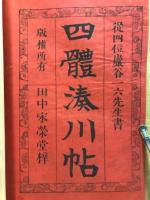 從四位巖谷六先生書
四體湊川帖
版權所有 田中宋榮堂梓